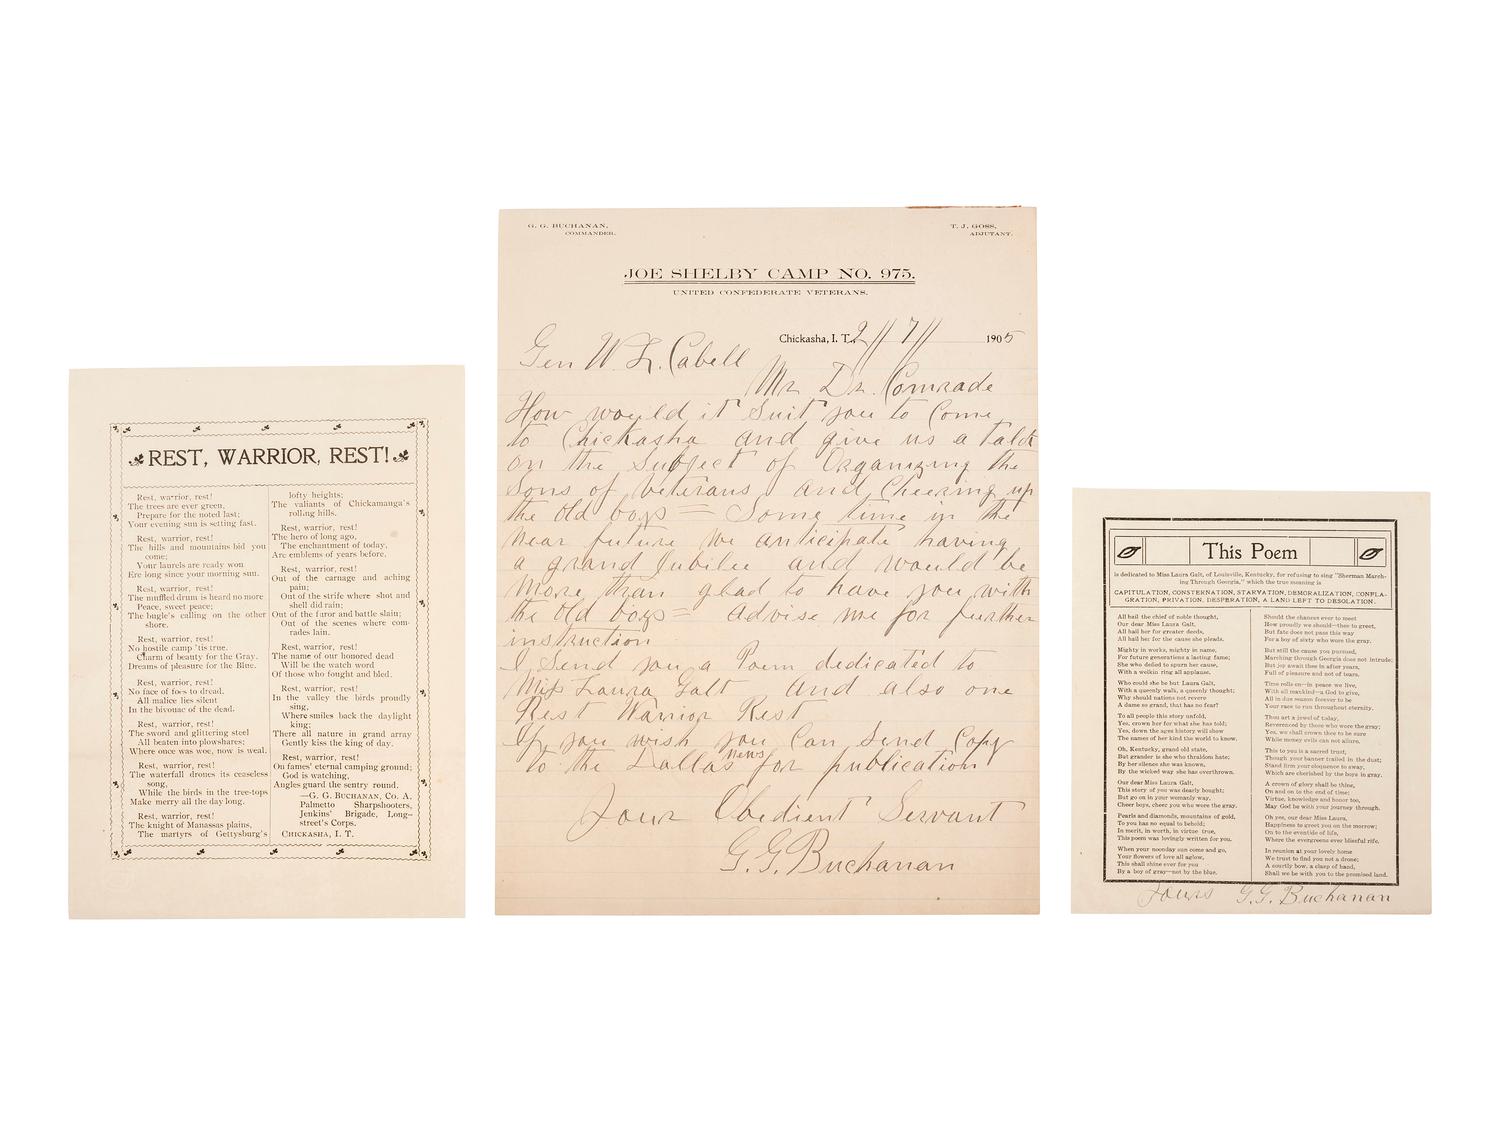 REST, WARRIOR, REST!
Rest, warrior, rest!
The trees are ever green,
Prepare for the noted last;
Your evening sun is setting fast.
Rest, warrior, rest!
The hills and mountains bid you
come;
Your laurels are ready won
Ere long since your morning sun.
Rest, warrior, rest!
The muffled drum is heard no more
Peace, sweet peace;
The bugle's calling on the other
shore.
Rest, warrior, rest!
No hostile camp 'tis true.
Charm of beauty for the Gray.
Dreams of pleasure for the Blue.
Rest, warrior, rest!
No face of foes to dread,
All malice lies silent
In the bivouac of the dead.
Rest, warrior, rest!
The sword and glittering steel
All beaten into plowshares;
Where once was woe, now is weal.
Rest, warrior, rest!
The waterfall drones its ceaseless
song,
While the birds in the tree-tops
Make merry all the day long.
Rest, warrior, rest!
The knight of Manassas plains,
The martyrs of Gettysburg's
lofty heights;
The valiants of Chickamauga's
rolling hills.
Rest, warrior, rest!
The hero of long ago,
The enchantment of today,
Are emblems of years before.
Rest, warrior, rest!
Out of the carnage and aching
pain;
Out of the strife where shot and
shell did rain;
Out of the furor and battle slain;
Out of the scenes where com-
rades lain.
Rest, warrior, rest!
The name of our honored dead
Will be the watch word
Of those who fought and bled.
Rest, warrior, rest!
In the valley the birds proudly
sing,
Where smiles back the daylight
king;
There all nature in grand array
Gently kiss the king of day.
Rest, warrior, rest!
On fames' eternal camping ground;
God is watching,
Angles guard the sentry round.
—G. G. BUCHANAN, Co. A.
Palmetto Sharpshooters,
Jenkins' Brigade, Long-
street's Corps.
CHICKASHA, I. T.
G. G. BUCHANAN,
COMMANDER.
T. J. GOSS,
ADJUTANT.
JOE SHELBY CAMP NO. 975.
UNITED CONFEDERATE VETERANS.
Chickasha, I. T., 2//7// 1905
Gen W. L. Cabell
Mr Dr. Comrade
How would it Suit you to Come
to Chickasha and give us a talk
on the Subject of Organizing the
Sons of Veterans and Cheering up
the old boys = Some time in the
near future we anticipate having
a grand Jubilee and would be
more than glad to have you with
the old boys = advise me for further
instruction
I Send you a Poem dedicated to
Miss Laura Galt and also one
Rest Warrior Rest
If you wish you Can Send Copy
to the Dallas news for publication
Your Obedient Servant
G. G. Buchanan
This Poem
is dedicated to Miss Laura Galt, of Louisville, Kentucky, for refusing to sing "Sherman March-
ing Through Georgia," which the true meaning is
CAPITULATION, CONSTERNATION, STARVATION, DEMORALIZATION, CONFLA-
GRATION, PRIVATION, DESPERATION, A LAND LEFT TO DESOLATION.
All hail the chief of noble thought,
Our dear Miss Laura Galt,
All hail her for greater deeds,
All hail her for the cause she pleads.
Mighty in works, mighty in name,
For future generations a lasting fame;
She who defied to spurn her cause,
With a welkin ring all applause.
Who could she be but Laura Galt,
With a queenly walk, a queenly thought;
Why should nations not revere
A dame so grand, that has no fear?
To all people this story unfold,
Yes, crown her for what she has told;
Yes, down the ages history will show
The names of her kind the world to know.
Oh, Kentucky, grand old state,
But grander is she who thraldom hate;
By her silence she was known,
By the wicked way she has overthrown.
Our dear Miss Laura Galt,
This story of you was dearly bought;
But go on in your womanly way,
Cheer boys, cheer you who wore the gray.
Pearls and diamonds, mountains of gold,
To you has no equal to behold;
In merit, in worth, in virtue true,
This poem was lovingly written for you.
When your noonday sun come and go,
Your flowers of love all aglow,
This shall shine ever for you
By a boy of gray—not by the blue.
Should the chances ever to meet
How proudly we should—thee to greet,
But fate does not pass this way
For a boy of sixty who wore the gray.
But still the cause you pursued,
Marching through Georgia does not intrude;
But joy await thee in after years,
Full of pleasure and not of tears.
Time rolls on—in peace we live,
With all mankind—a God to give,
All in due season forever to be
Your race to run throughout eternity.
Thou art a jewel of today,
Reverenced by those who wore the gray;
Yes, we shall crown thee to be sure
While money evils can not allure.
This to you is a sacred trust,
Though your banner trailed in the dust;
Stand firm your eloquence to sway,
Which are cherished by the boys in gray.
A crown of glory shall be thine,
On and on to the end of time;
Virtue, knowledge and honor too,
May God be with your journey through.
Oh yes, our dear Miss Laura,
Happiness to greet you on the morrow;
On to the eventide of life,
Where the evergreens ever blissful rife.
In reunion at your lovely home
We trust to find you not a drone;
A courtly bow, a clasp of hand,
Shall we be with you to the promised land.
Yours G. G. Buchanan